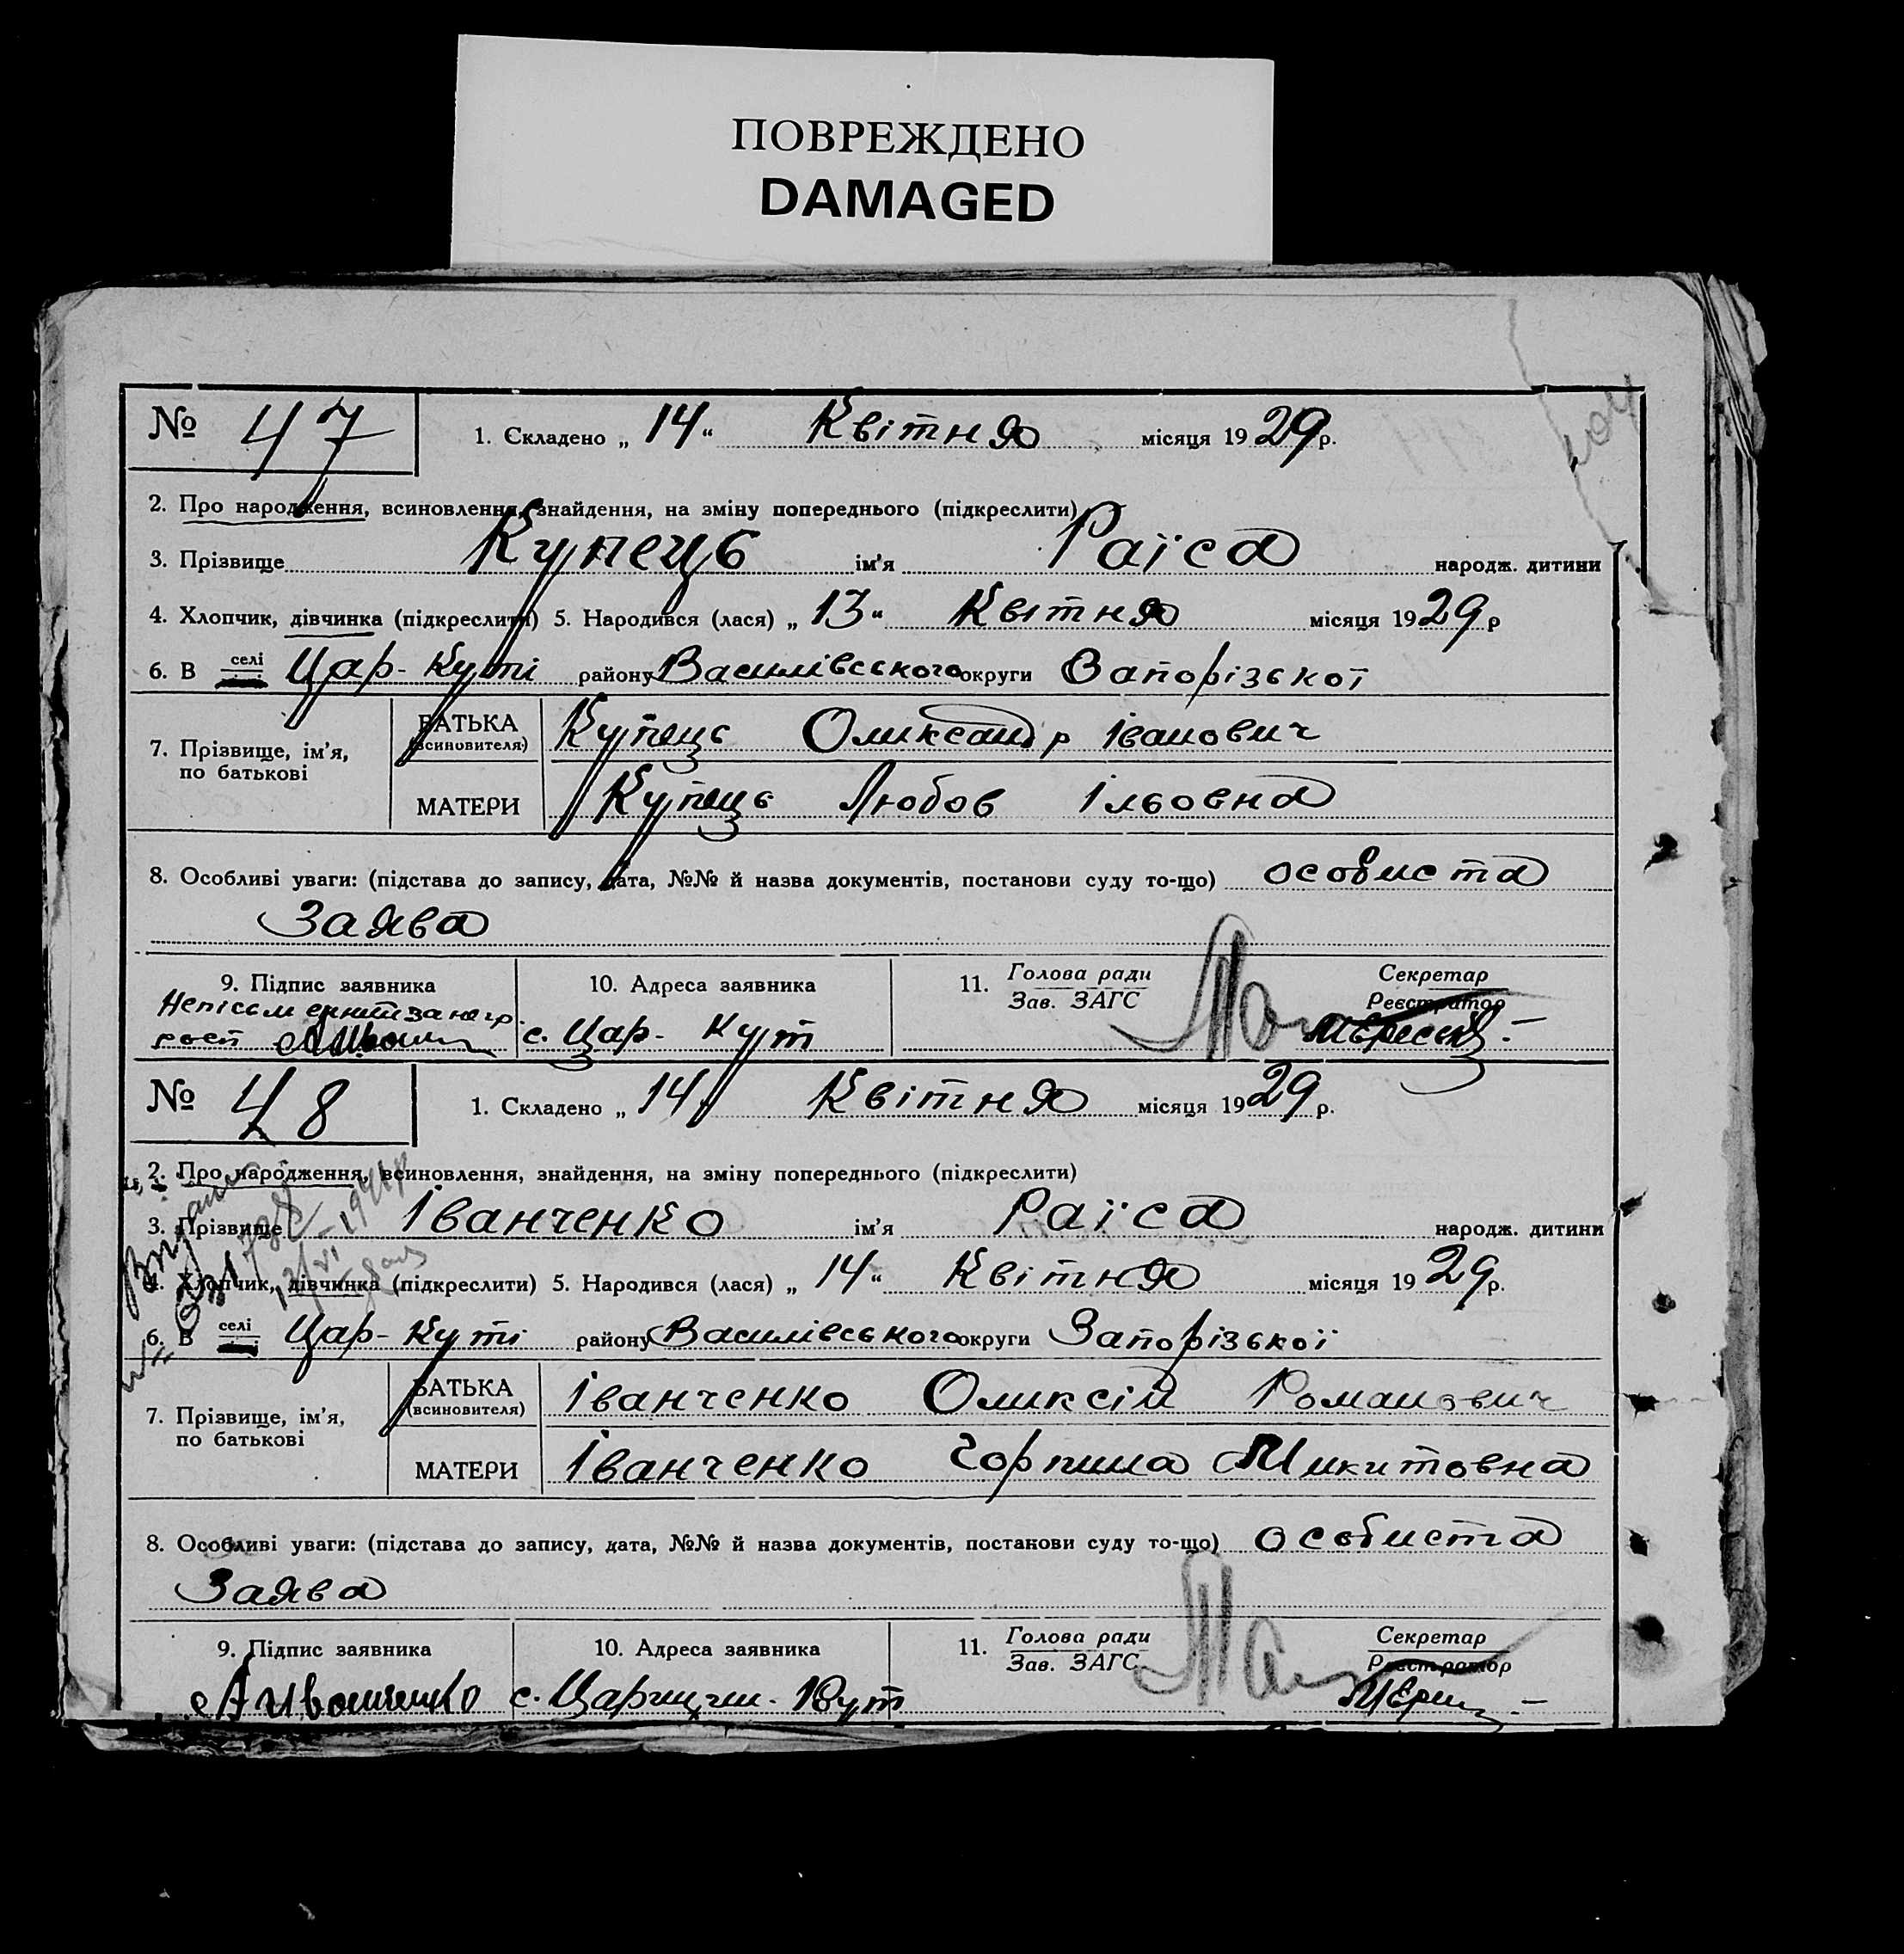 ПОВРЕЖДЕНО
DAMAGED
№ 47 1. Складено „ 14 “ Квітня місяця 1929 р.
2. Про народження, всиновлення, знайдення, на зміну попереднього (підкреслити)
3. Прізвище Купець ім’я Раїса народж. дитини
4. Хлопчик, дівчинка (підкреслити) 5. Народився (лася) „ 13 “ Квітня місяця 1929 р
6. В селі Цар-Куті району Василівського округи Запорізької
7. Прізвище, ім’я, по батькові
БАТЬКА (всиновителя) Купець Оликсандр Іванович
МАТЕРИ Купець Любов Ільовна
8. Особливі уваги: (підстава до запису, дата, №№ й назва документів, постанови суду то-що) особиста
Заява
9. Підпис заявника 10. Адреса заявника 11. Голова ради Секретар
Зав. ЗАГС Реєстратор
с. Цар-Кут
№ 48 1. Складено „ 14 “ Квітня місяця 1929 р.
2. Про народження, всиновлення, знайдення, на зміну попереднього (підкреслити)
3. Прізвище Іванченко ім’я Раїса народж. дитини
4. Хлопчик, дівчинка (підкреслити) 5. Народився (лася) „ 14 “ Квітня місяця 1929 р.
6. В селі Цар-Куті району Василівського округи Запорізької
7. Прізвище, ім’я, по батькові
БАТЬКА (всиновителя) Іванченко Оликсій Романович
МАТЕРИ Іванченко Горпина Микитовна
8. Особливі уваги: (підстава до запису, дата, №№ й назва документів, постанови суду то-що) особиста
Заява
9. Підпис заявника 10. Адреса заявника 11. Голова ради Секретар
Зав. ЗАГС Реєстратор
А Иванченко с. Царицин-Кут